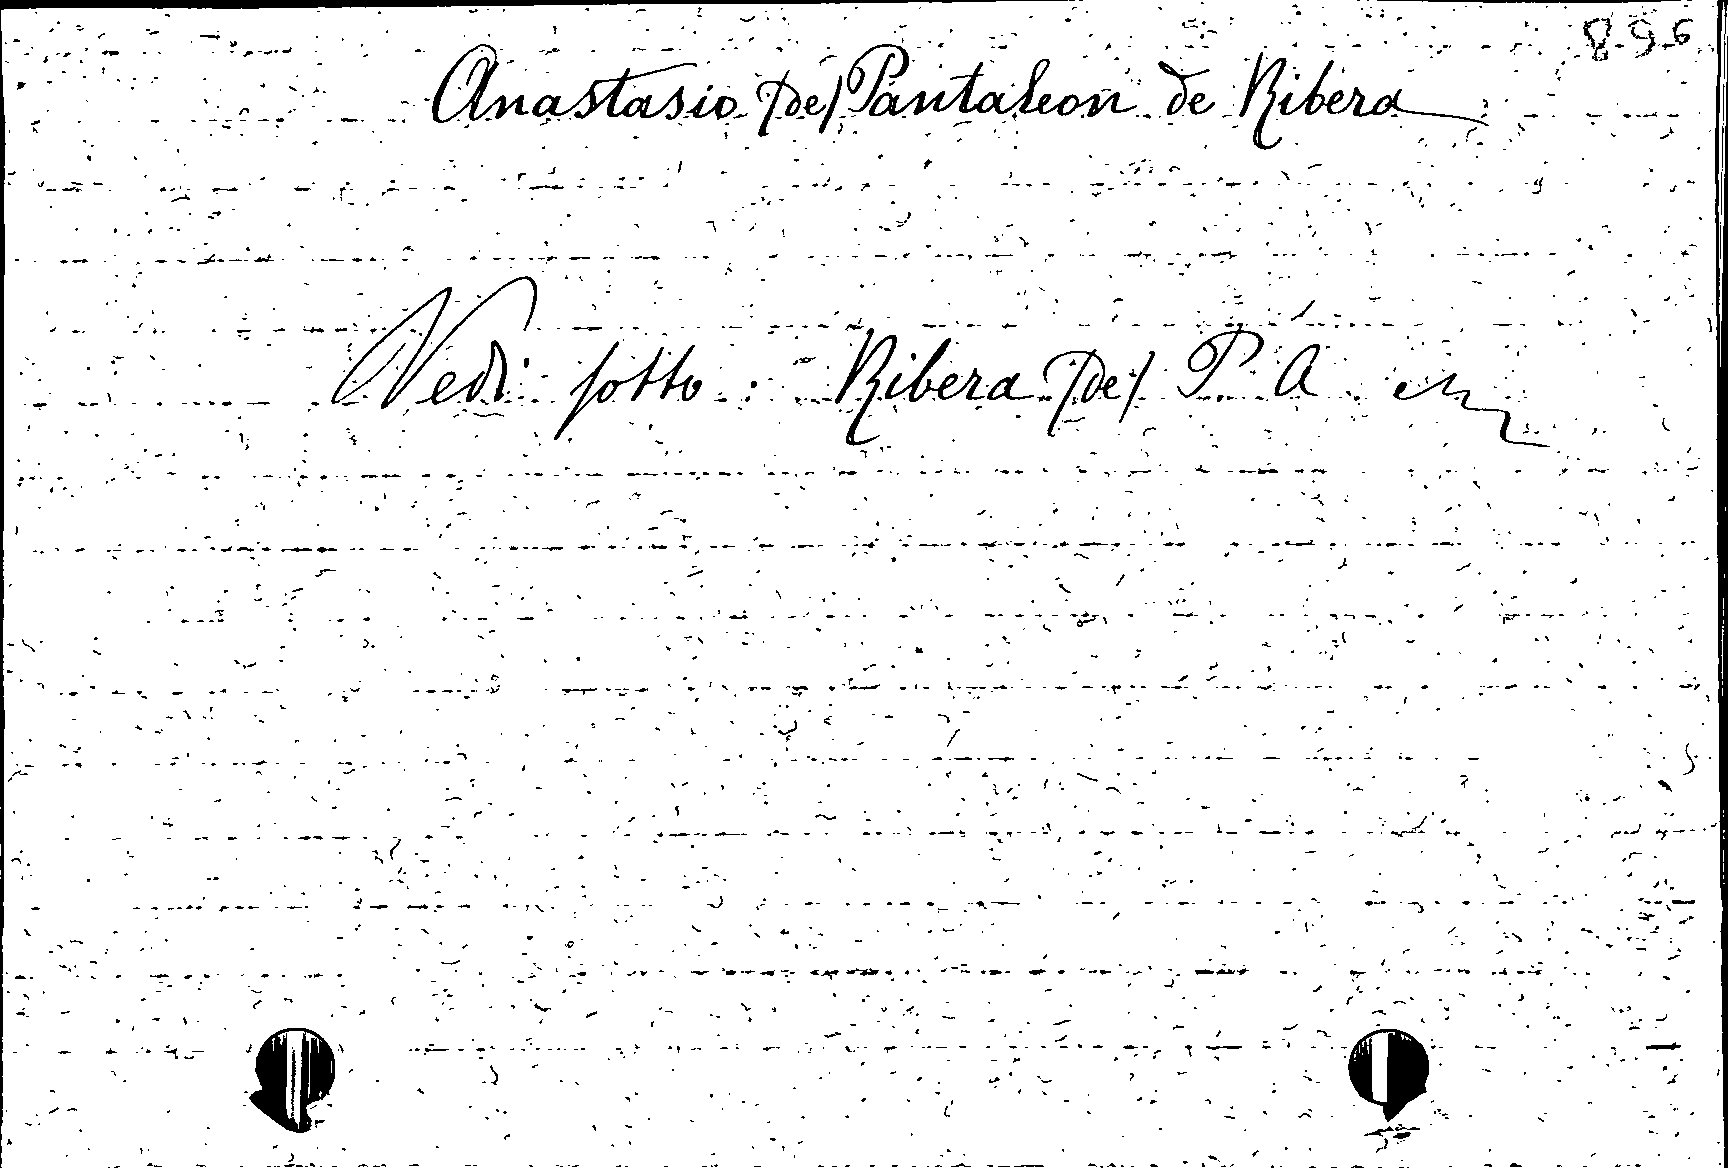 896
Anastasio (de) Pantaleon de Ribera
Vedi sotto : Ribera (de) P. A